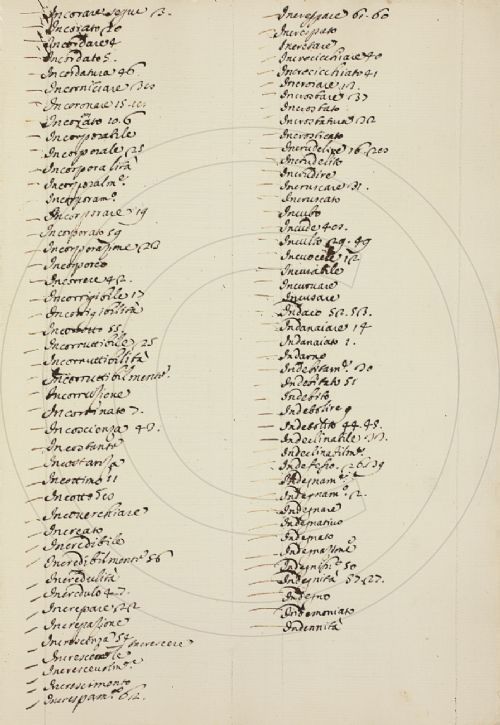 Incorare segue 3.
Incorato 20
Incordare 4
Incordato 5.
Incordatura 46
Incorniciare 320
Incoronare 15
Incorporabile
Incorporale 25
Incorporalità
Incorporalm.e
Incorporam.o
Incorporare 19
Incorporato 59
Incorporazione 28
Incorporeo
Incorrere 42.
Incorrigibile 17
Incorrigibilità
Incorrotto 55
Incorruttibile 25
Incorruttibilità
Incorruttibilmente.
Incorruzione
Incortinato 7.
Incoscienza 47.
Incostante
Incostanza
Incottimo 11
Incotto
Incoverchiare
Increato
Incredibile
Incredibilmente 56
Incredulità
Incredulo 47.
Increpare 22
Increpazione
Increscenza 54
Increscere
Increscevole
Increscevolm.e
Increscimento
Increspam.to 62.
Increspare 61. 60
Increspato
Incretare
Incrocicchiare 40
Incrocicchiato 41
Incrostare 37
Incrostato
Incrostatura 32
Incrudelire 16.
Incrudelito
Incrudire
Incruscare 31.
Incruscato
Incubo
Incude 401.
Inculto 29. 49
Incuocere 12
Incurabile
Incurvare
Incusare
Indaco 52. 53.
Indanaiare 14
Indanaiato 1.
Indarno
Indebitam.e 30
Indebitato 51
Indebito
Indebolire 9
Indebolito 44. 45.
Indeclinabile
Indeclinabilm.e
Indefesso. 26. 39
Indegnam.e
Indegnam.o 2.
Indegnare
Indegnativo
Indegnato
Indegnazione
Indegnità 57. 27.
Indegno
Indemoniato
Indennità